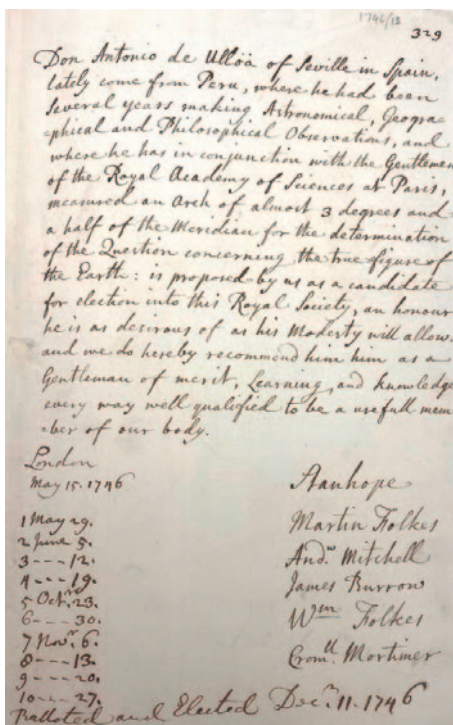 1746/13
329
Don Antonio de Ullöä of Seville in Spain,
lately come from Peru, where he had been
several years making Astronomical, Geogra=
=phical and Philosophical Observations, and
where he has in conjunction with the Gentlemen
of the Royal Academy of Sciences at Paris,
measured an Arch of almost 3 degrees and
a half of the Meridian for the determination
of the Question concerning the true figure of
the Earth: is proposed by us as a candidate
for election into this Royal Society, an honour
he is as desirous of as his Modesty will allow.
and we do hereby recommend him him as a
Gentleman of merit, Learning, and knowledge
every way well qualified to be a usefull mem
=ber of our body.
London
May 15. 1746
Stanhope
1 May 29.
Martin Folkes
2 June 5.
3 --- 12.
And.w Mitchell
4 --- 19.
James Burrow
5 Oct.r 23.
6 --- 30.
Wm Folkes
7 Nov.r 6.
8 --- 13.
Crom.ll Mortimer
9 --- 20.
10 --- 27.
Balloted and Elected Dec.r 11. 1746